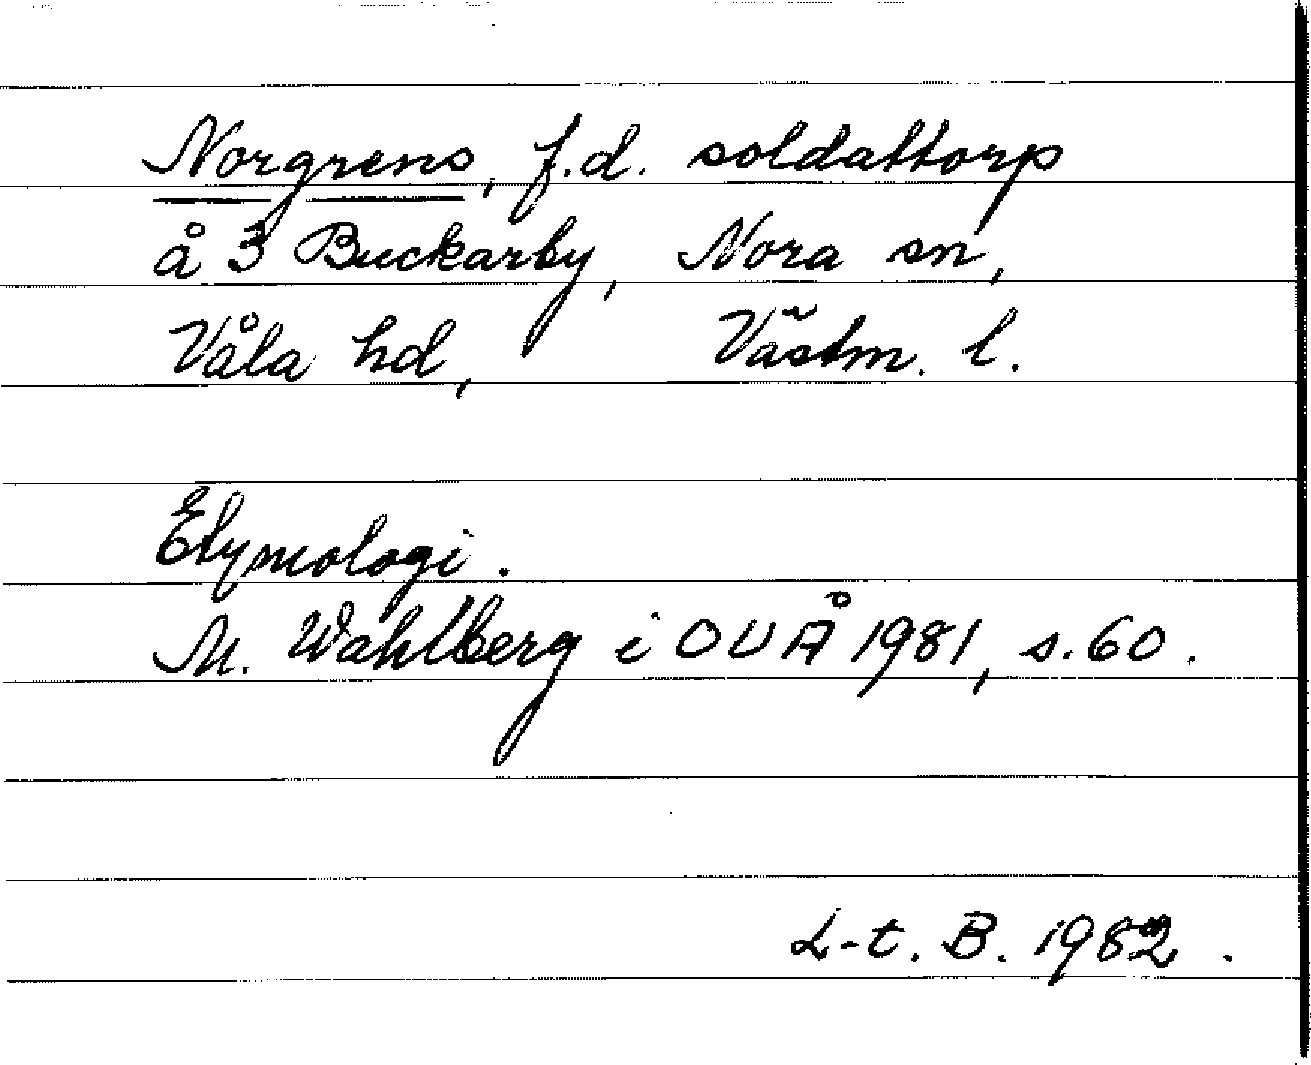 Norgrens, f.d. soldattorp
å 3 Buckarby, Nora sn,
Våla hd, Västm. l.
Etymologi.
M. Wahlberg i OUÅ 1981, s. 60.
L-t. B. 1982.